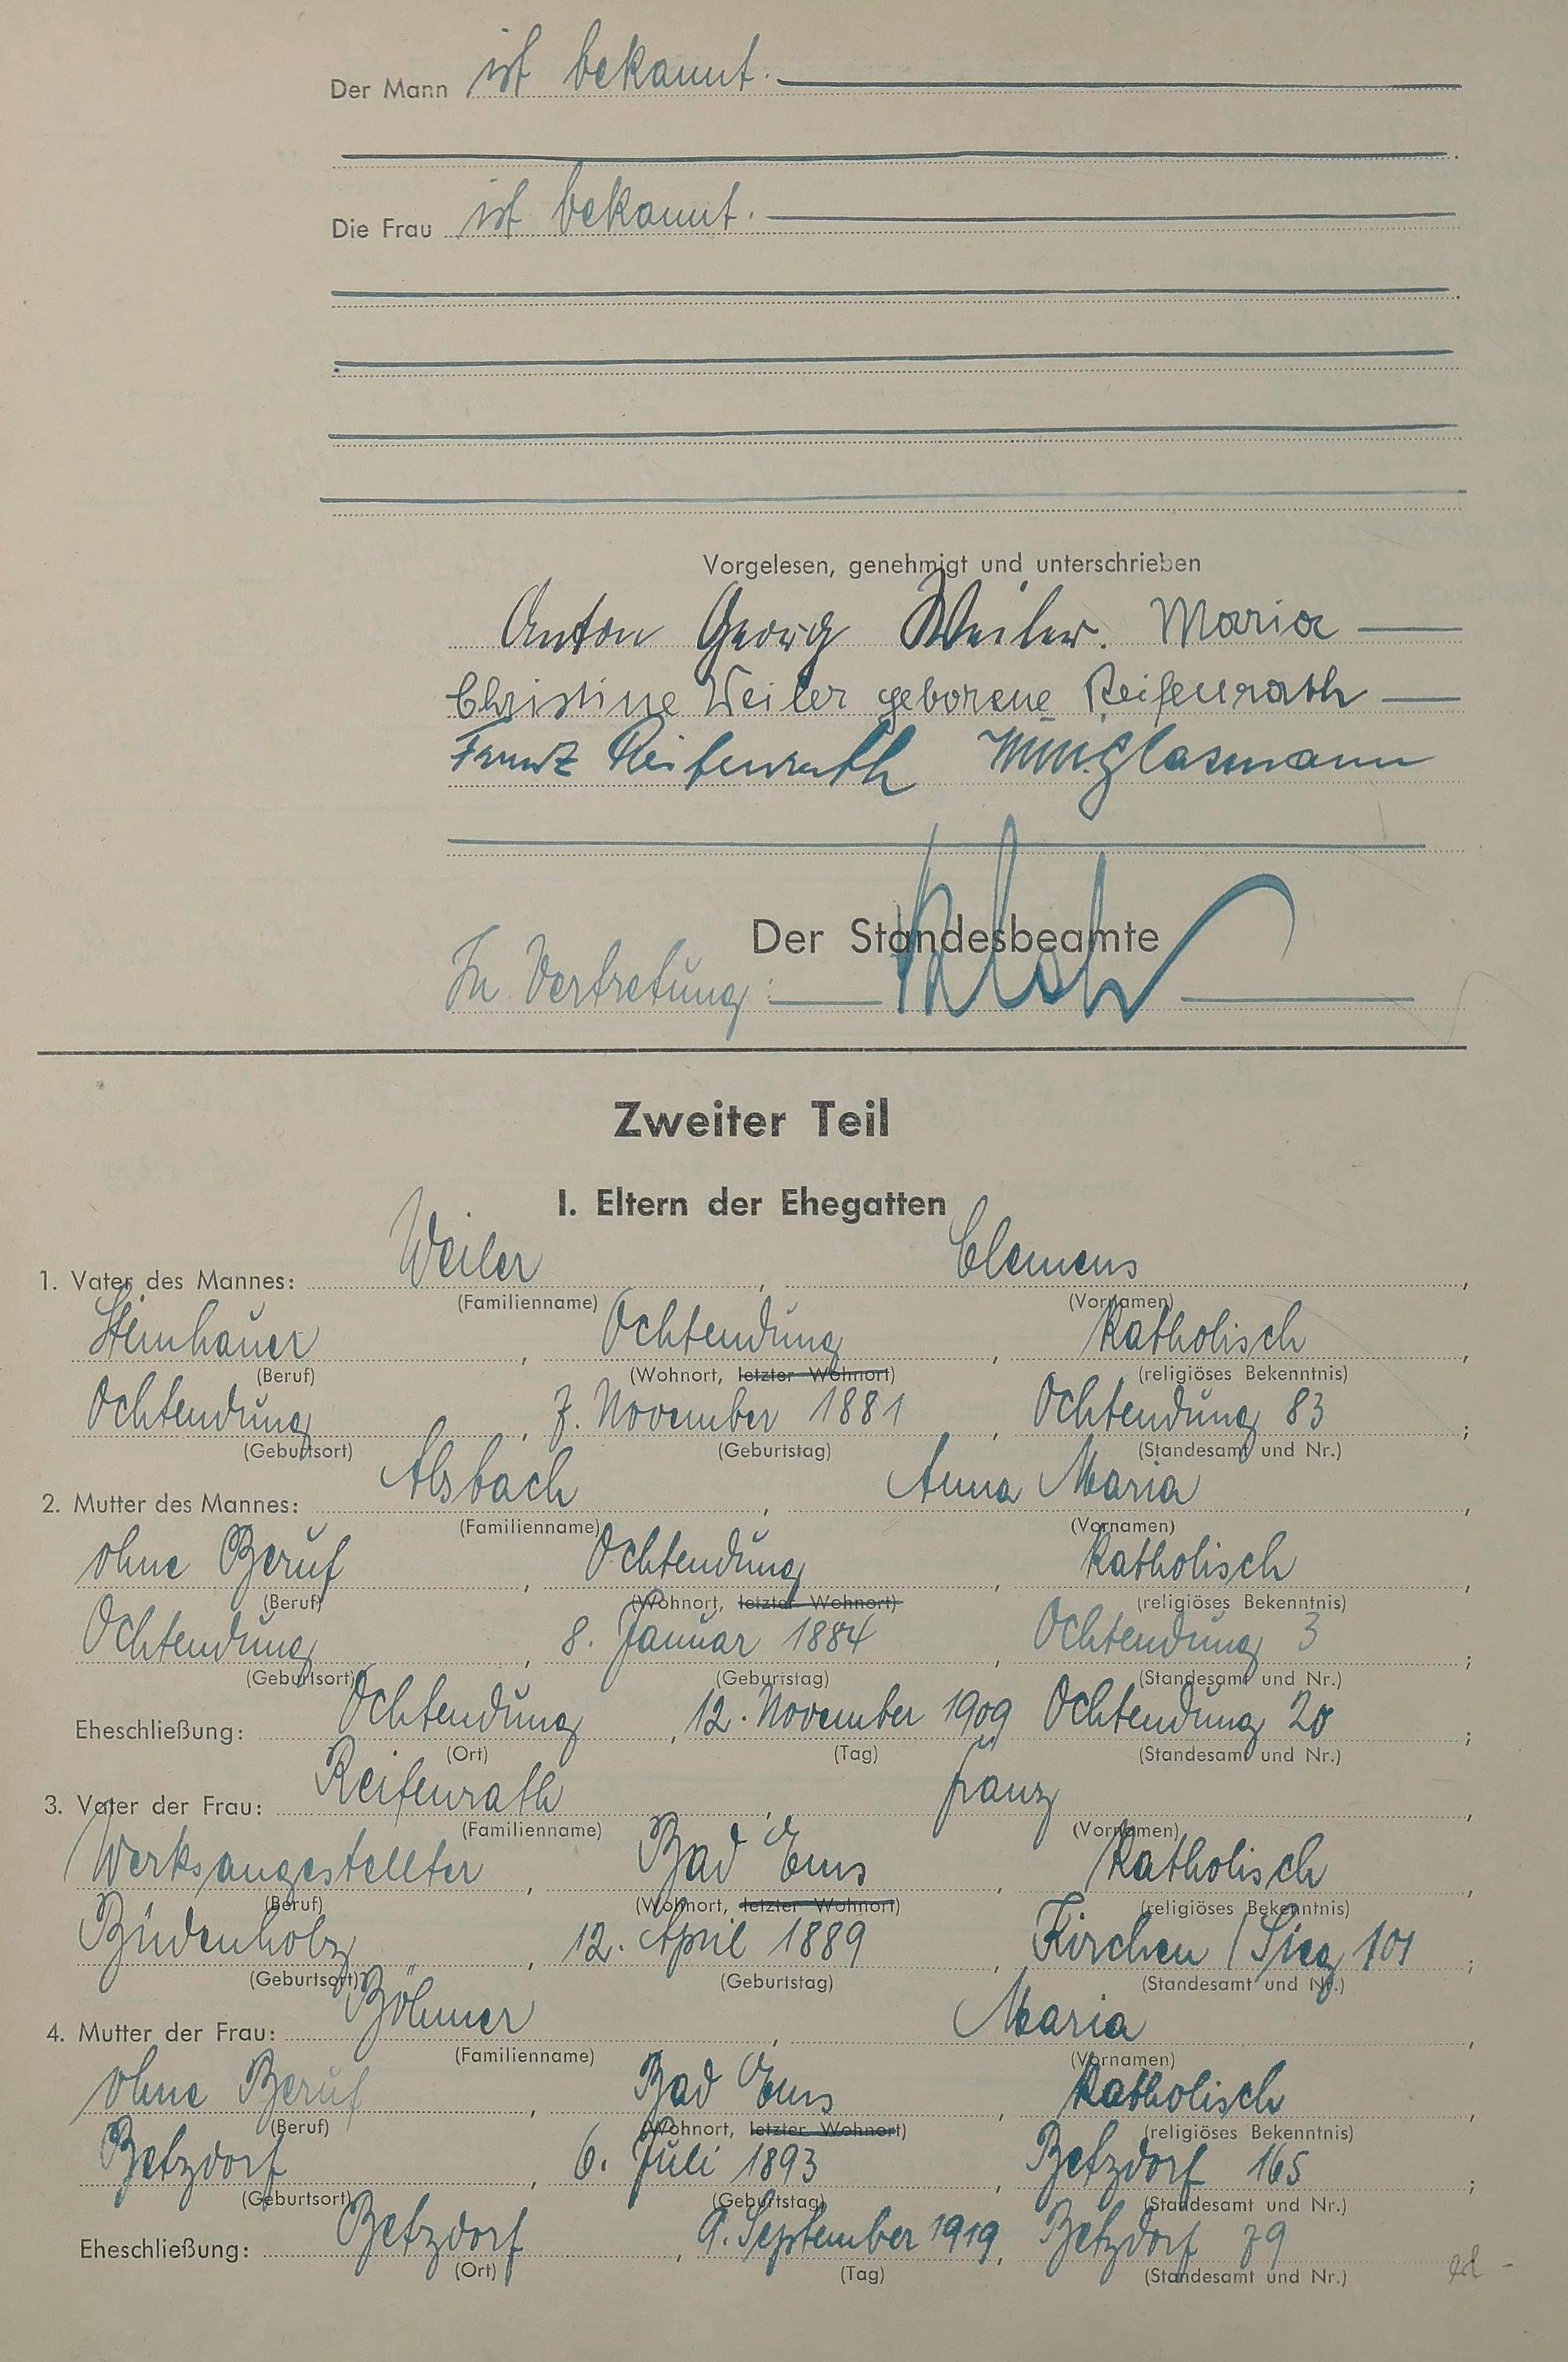 Der Mann ist bekannt.
Die Frau ist bekannt.
Vorgelesen, genehmigt und unterschrieben
Anton Georg Weiler. Maria
Christine Weiler geborene Reifenrath
Franz Reifenrath Glasmann
Der Standesbeamte
In Vertretung:
Zweiter Teil
I. Eltern der Ehegatten
1. Vater des Mannes: Weiler, Clemens,
(Familienname) (Vornamen)
Steinhauer, Ochtendung, katholisch,
(Beruf) (Wohnort, letzter Wohnort) (religiöses Bekenntnis)
Ochtendung, 7. November 1881, Ochtendung 83;
(Geburtsort) (Geburtstag) (Standesamt und Nr.)
2. Mutter des Mannes: Alsbach, Anna Maria,
(Familienname) (Vornamen)
ohne Beruf, Ochtendung, katholisch,
(Beruf) (Wohnort, letzter Wohnort) (religiöses Bekenntnis)
Ochtendung, 8. Januar 1884, Ochtendung 3;
(Geburtsort) (Geburtstag) (Standesamt und Nr.)
Eheschließung: Ochtendung, 12. November 1909 Ochtendung 20;
(Ort) (Tag) (Standesamt und Nr.)
3. Vater der Frau: Reifenrath, Franz,
(Familienname) (Vornamen)
Werksangestellter, Bad Ems, katholisch,
(Beruf) (Wohnort, letzter Wohnort) (religiöses Bekenntnis)
Büdenholz, 12. April 1889, Kirchen/Sieg 101;
(Geburtsort) (Geburtstag) (Standesamt und Nr.)
4. Mutter der Frau: Böhmer, Maria,
(Familienname) (Vornamen)
ohne Beruf, Bad Ems, katholisch,
(Beruf) (Wohnort, letzter Wohnort) (religiöses Bekenntnis)
Betzdorf, 6. Juli 1893, Betzdorf 165;
(Geburtsort) (Geburtstag) (Standesamt und Nr.)
Eheschließung: Betzdorf, 9. September 1919, Betzdorf 79
(Ort) (Tag) (Standesamt und Nr.)